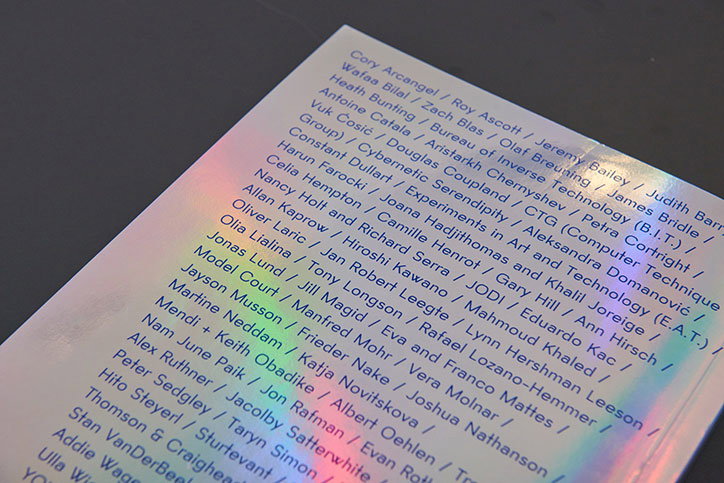 Cory Arcangel / Roy Ascott / Jeremy Bailey / Judith Barr
Wafaa Bilal / Zach Blas / Olaf Breuning / James Bridle /
Heath Bunting / Bureau of Inverse Technology (B.I.T.) /
Antoine Catala / Aristarkh Chernyshev / Petra Cortright /
Vuk Ćosić / Douglas Coupland / CTG (Computer Technique
Group) / Cybernetic Serendipity / Aleksandra Domanović /
Constant Dullart / Experiments in Art and Technology (E.A.T.) /
Harun Farocki / Joana Hadjithomas and Khalil Joreige /
Celia Hempton / Camille Henrot / Gary Hill / Ann Hirsch /
Nancy Holt and Richard Serra / JODI / Eduardo Kac /
Allan Kaprow / Hiroshi Kawano / Mahmoud Khaled /
Oliver Laric / Jan Robert Leegte / Lynn Hershman Leeson /
Olia Lialina / Tony Longson / Rafael Lozano-Hemmer /
Jonas Lund / Jill Magid / Eva and Franco Mattes /
Model Court / Manfred Mohr / Vera Molnar /
Jayson Musson / Frieder Nake / Joshua Nathanson /
Martine Neddam / Katja Novitskova /
Mendi + Keith Obadike / Albert Oehlen /
Nam June Paik / Jon Rafman / Evan
Alex Ruthner / Jacolby Satterwhite
Peter Sedgley / Taryn Simon /
Hito Steyerl / Sturtevant /
Thomson & Craighead
Stan VanDerBeek
Addie
Ulla